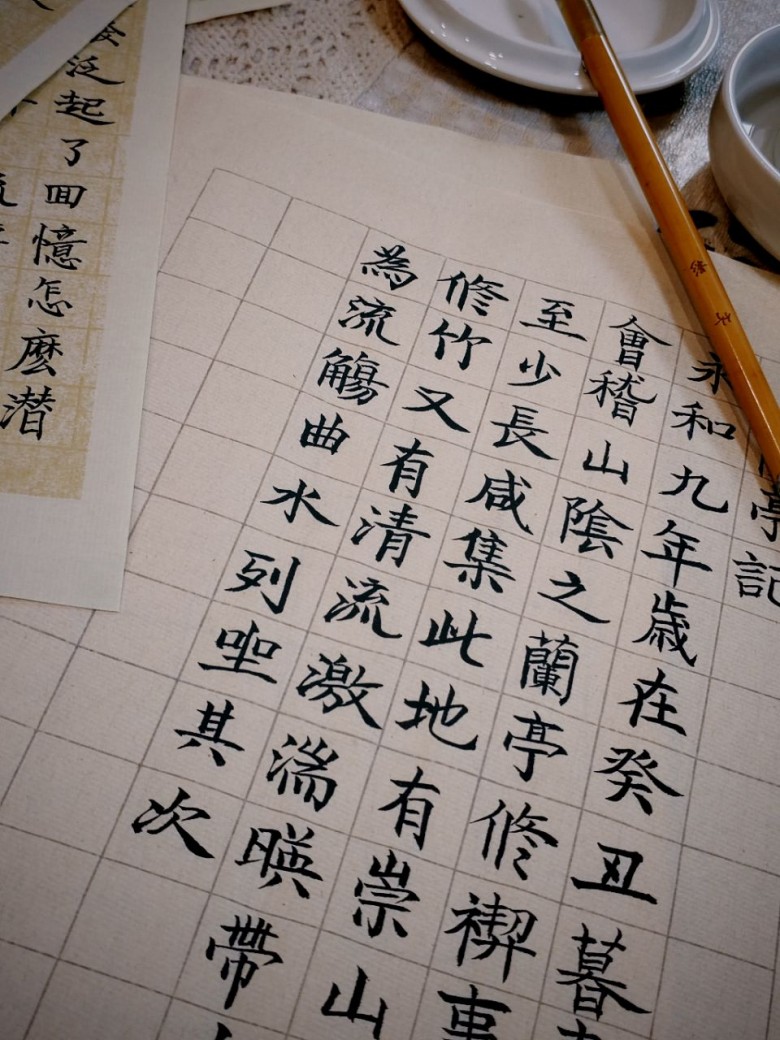 亭記
永和九年歳在癸丑暮
會稽山陰之蘭亭修禊事
至少長咸集此地有崇山
修竹又有清流激湍暎帶
為流觴曲水列坐其次
泛起了囬憶怎麽潜